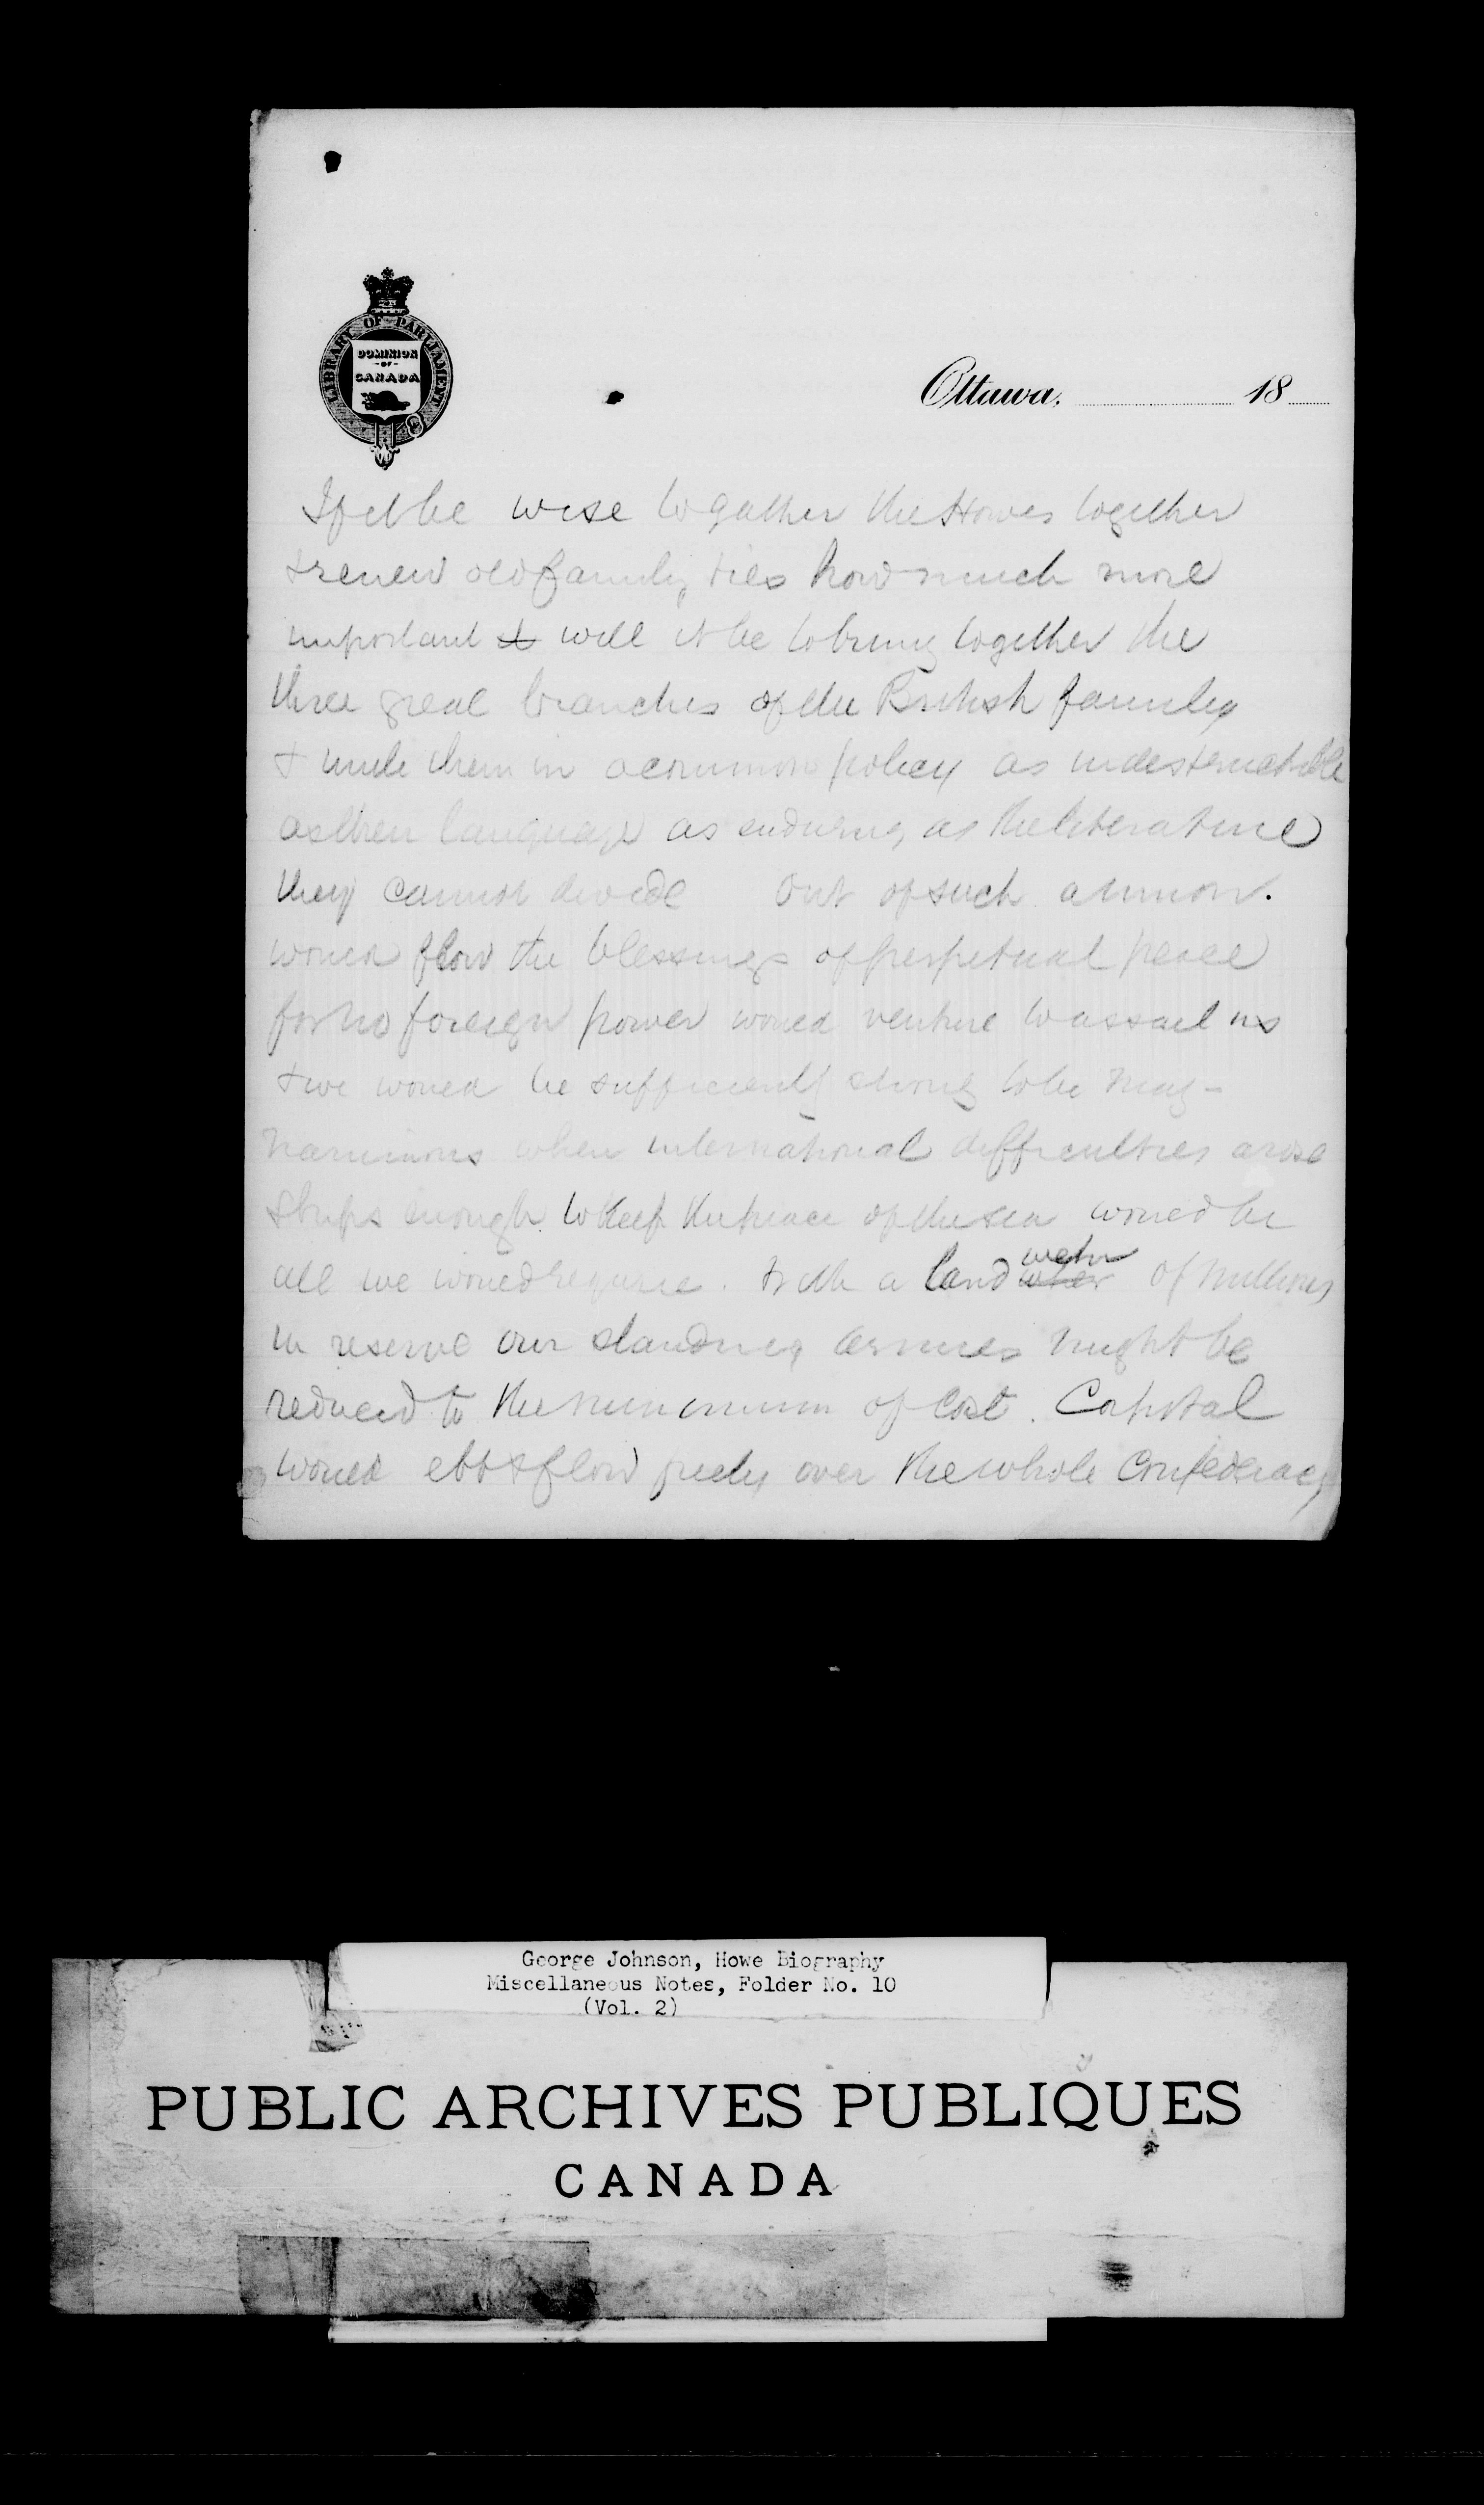 LIBRARY OF PARLIAMENT
DOMINION
-OF-
CANADA
Ottawa, 18
If it be wise to gather the Howes together
& renew old family ties how much more
important & will it be to bring together the
three great branches of the British family
& unite them in a common policy as indestructible
as their language as enduring as the literature
they cannot divide Out of such a union.
would flow the blessings of perpetual peace
for no foreign power would venture to assail us
& we would be sufficiently strong to be mag-
nanimous when international difficulties arose
Ships enough to keep the peace of the sea would be
all we would require. With a land wehr of millions
in reserve our standing armies might be
reduced to the minimum of cost. Capital
would ebb & flow freely over the whole Confederacy
George Johnson, Howe Biography
Miscellaneous Notes, Folder No. 10
(Vol. 2)
PUBLIC ARCHIVES PUBLIQUES
CANADA